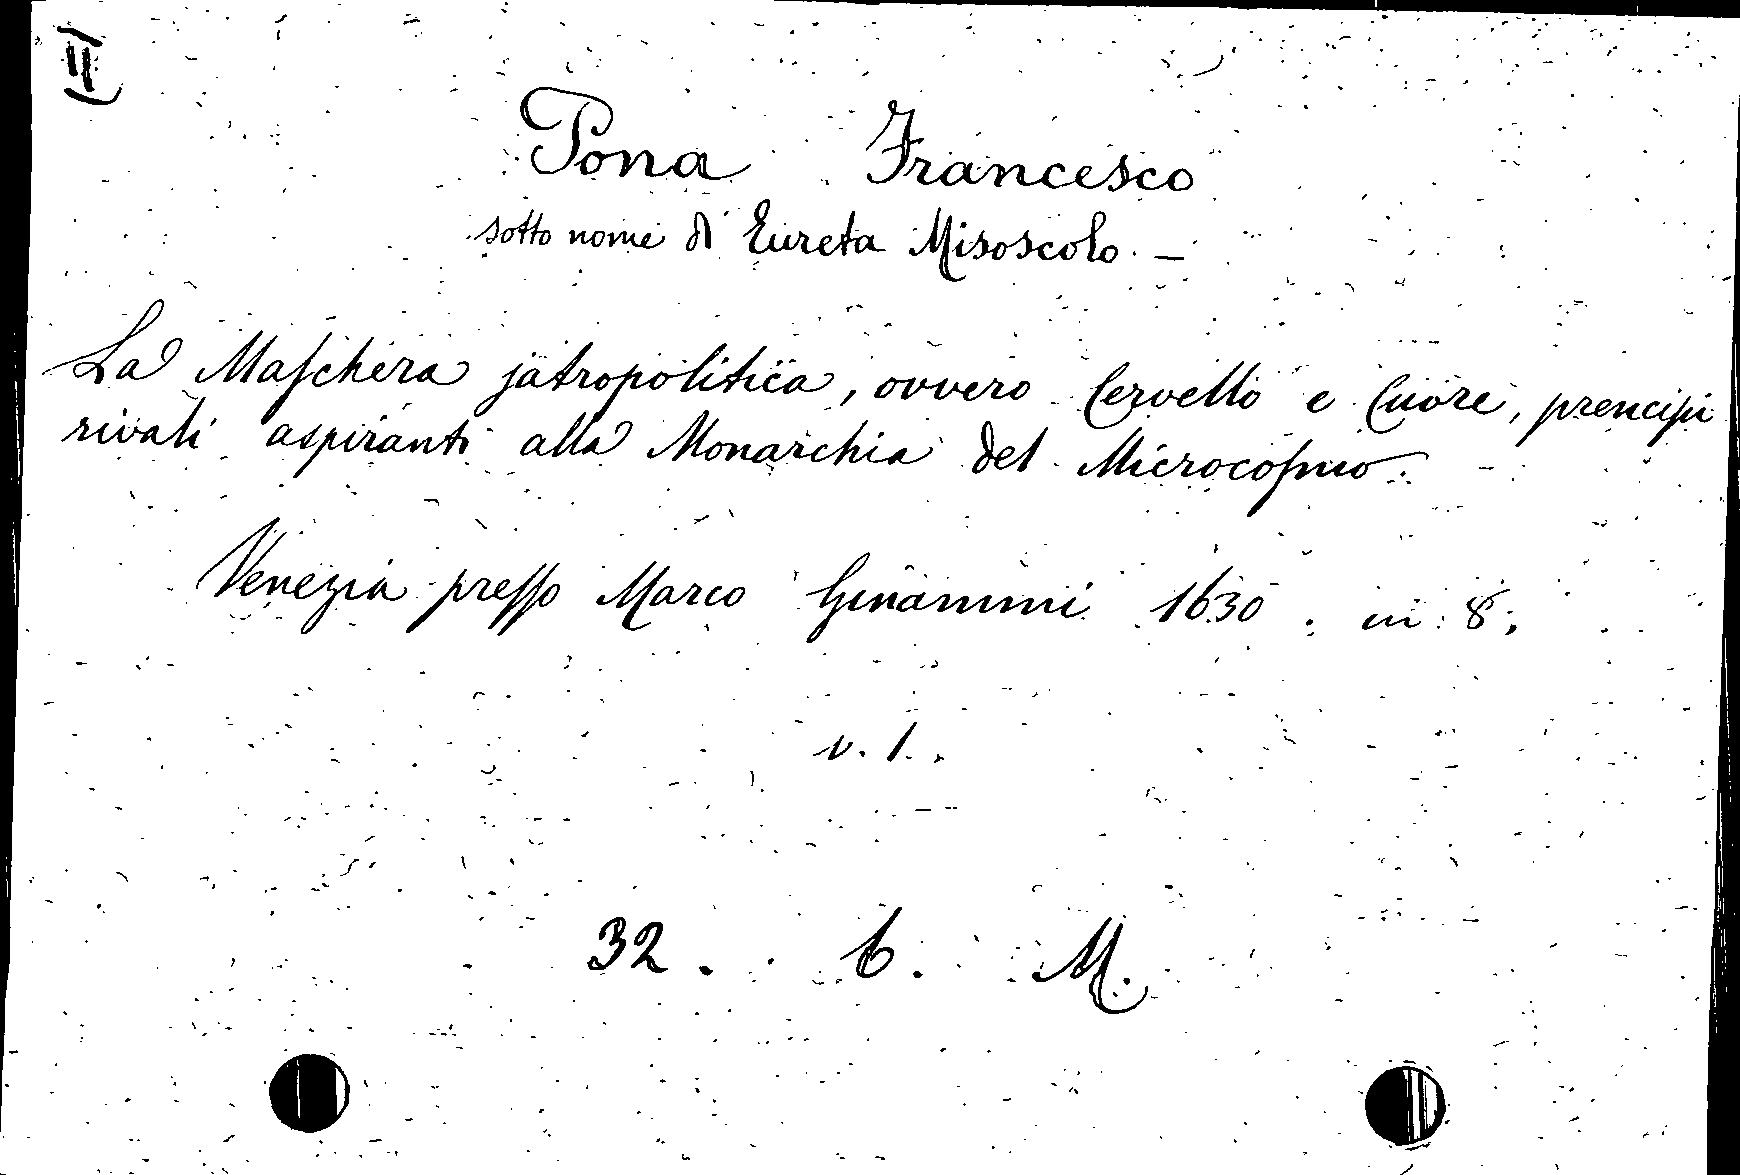 (II)
Pona Francesco
sotto nome di Eureta Misoscolo. —
La Maſchera jatropolitica, ovvero Cervello e Cuore, prencipi
rivali aspiranti alla Monarchia del Microcoſmo.
Venezia preſſo Marco Ginammi 1630. in 8.
v. 1.
32. 6. M.